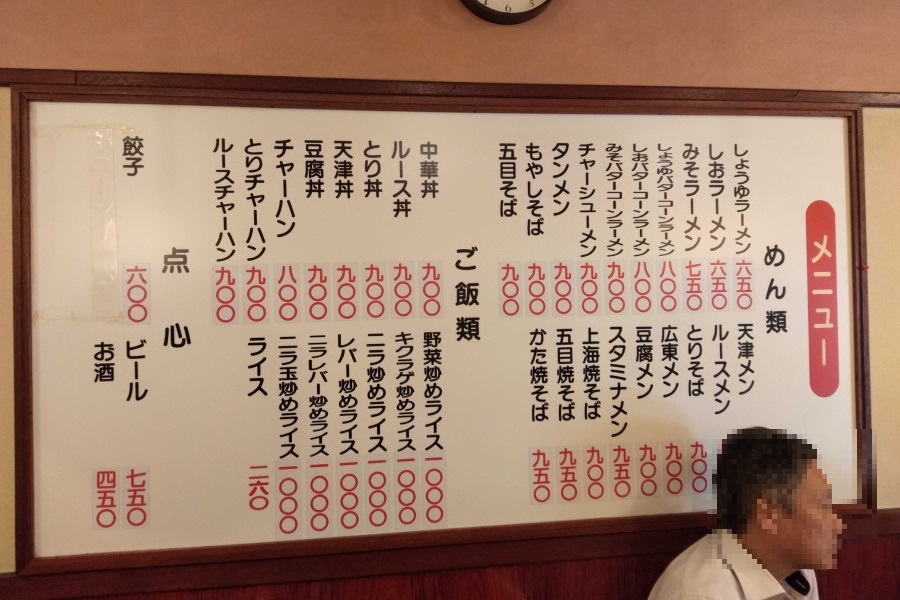 メニュー
めん類
しょうゆラーメン 六五〇
しおラーメン 六五〇
みそラーメン 七五〇
しょうゆバターコーンラーメン 八〇〇
しおバターコーンラーメン 八〇〇
みそバターコーンラーメン 九〇〇
チャーシューメン 九〇〇
タンメン 九〇〇
もやしそば 九〇〇
五目そば 九〇〇
天津メン
ルースメン
とりそば 九〇〇
広東メン 九〇〇
豆腐メン 九〇〇
スタミナメン 九五〇
上海焼そば 九〇〇
五目焼そば 九五〇
かた焼そば 九五〇
ご飯類
中華丼 九〇〇
ルース丼 九〇〇
とり丼 九〇〇
天津丼 九〇〇
豆腐丼 九〇〇
チャーハン 八〇〇
とりチャーハン 九〇〇
ルースチャーハン 九〇〇
野菜炒めライス 一〇〇〇
キクラゲ炒めライス 一〇〇〇
ニラ炒めライス 一〇〇〇
レバー炒めライス 一〇〇〇
ニラレバー炒めライス 一〇〇〇
ニラ玉炒めライス 一〇〇〇
ライス 二六〇
点心
餃子 六〇〇
ビール 七五〇
お酒 四五〇